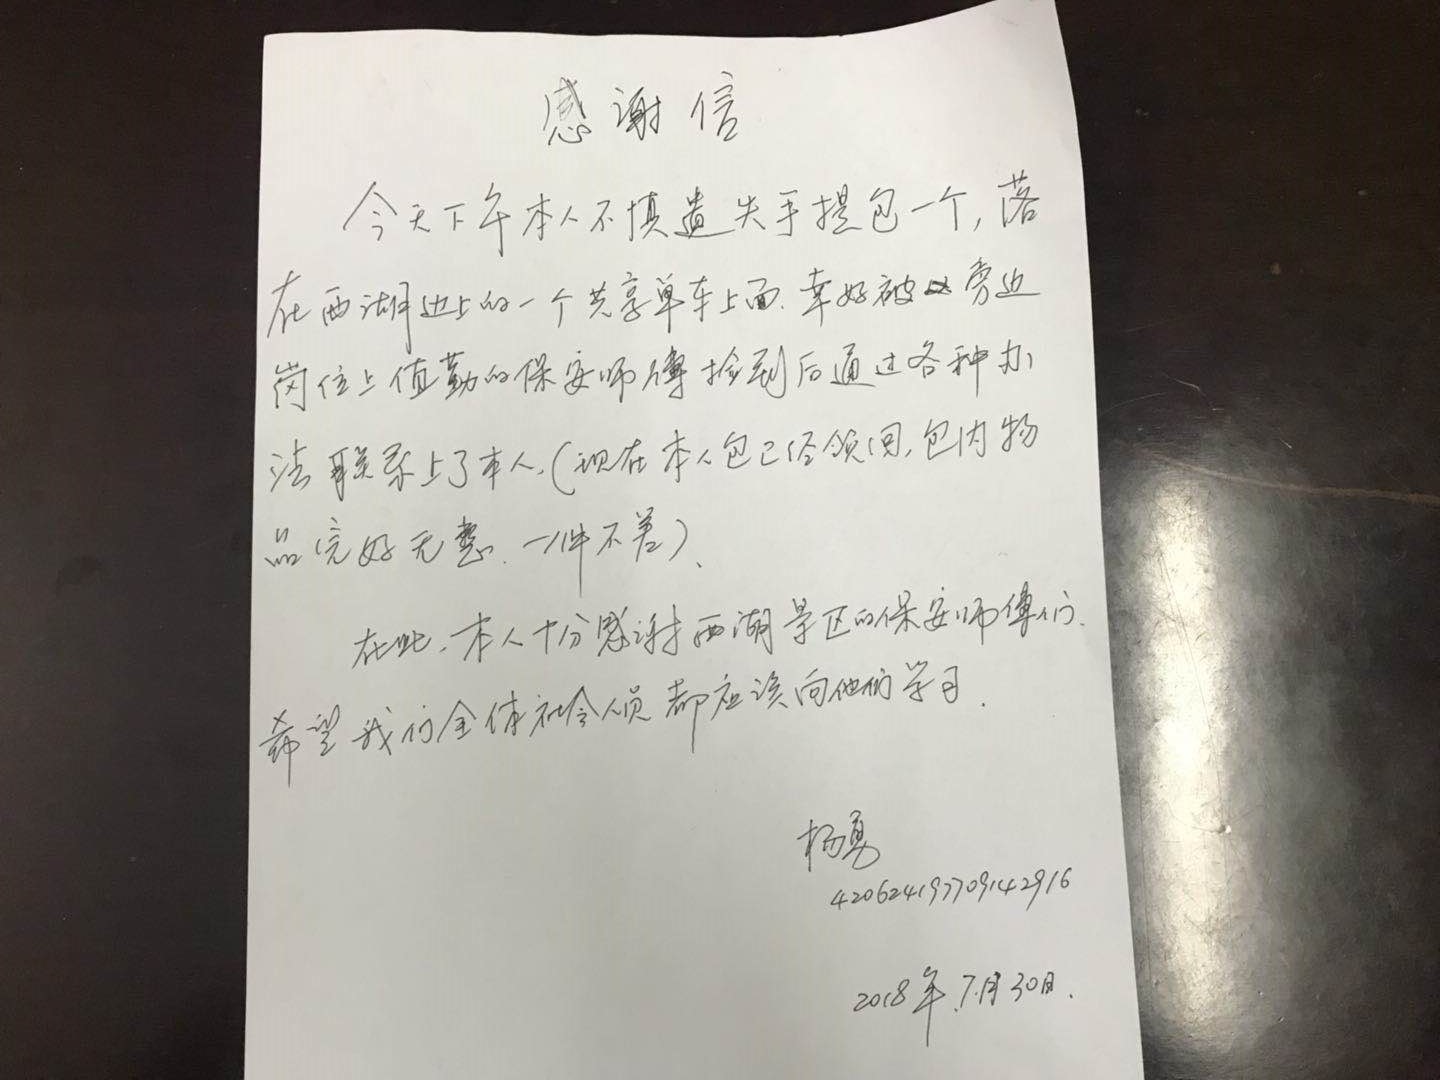 感谢信
今天下午本人不慎遗失手提包一个，落
在西湖边上的一个共享单车上面.幸好被旁边
岗位上值勤的保安师傅捡到后通过各种办
法联系上了本人.(现在本人包已经领回,包内物
品完好无恙.一件不差)、
在此.本人十分感谢西湖景区的保安师傅们.
希望我们全体社会人员都应该向他们学习.
杨勇
420624197709142916
2018年.7月30日.